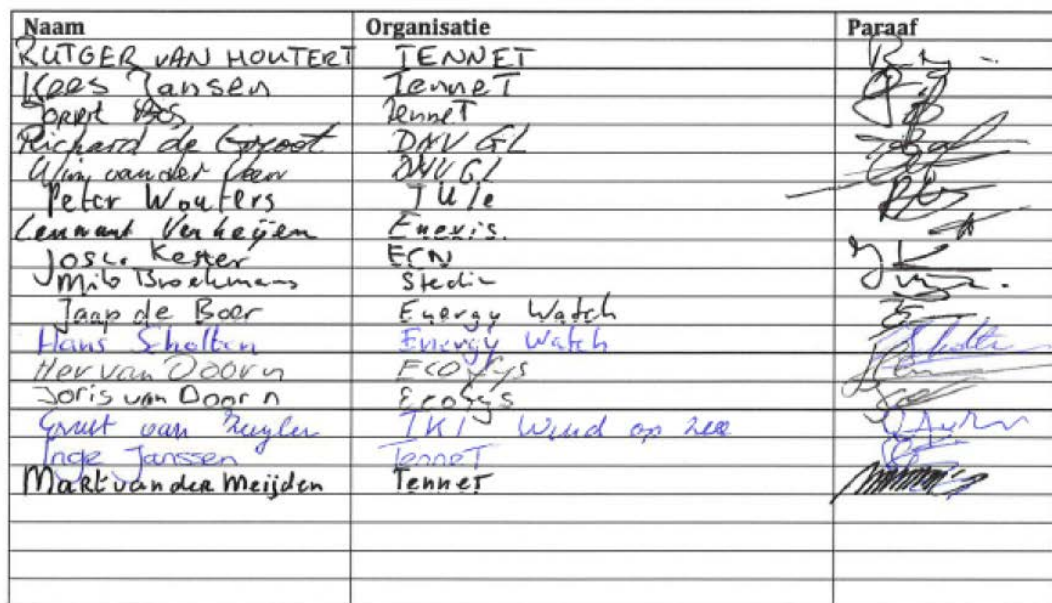 Naam Organisatie Paraaf
RUTGER VAN HOUTERT TENNET
Kees Jansen TenneT
Bos TenneT
Richard de Groot DNV GL
Wim van der Veen DNV GL
Peter Wouters TU/e
Lennart Verheijen Enexis.
Kester ECN
Milo Broekmans Stedin
Jaap de Boer Energy Watch
Hans Scholten Energy Watch
van Doorn Ecofys
Joris van Doorn Ecofys
van Zuylen TKI Wind op zee
Inge Janssen TenneT
Mart van der Meijden TenneT